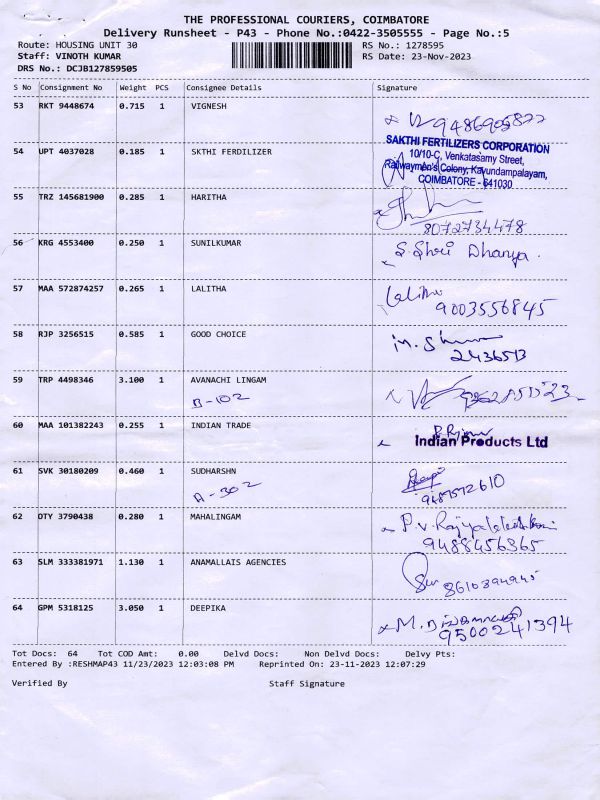 THE PROFESSIONAL COURIERS, COIMBATORE
Delivery Runsheet - P43 - Phone No.:0422-3505555 - Page No.:5
Route: HOUSING UNIT 30 RS No.: 1278595
Staff: VINOTH KUMAR RS Date: 23-Nov-2023
DRS No.: DCJB127859505
S No Consignment No Weight PCS Consignee Details Signature
53 RKT 9448674 0.715 1 VIGNESH
9486905822
54 UPT 4037028 0.185 1 SKTHI FERDILIZER
SAKTHI FERTILIZERS CORPORATION
10/10-C, Venkatasamy Street,
Railwaymen's Colony, Kavundampalayam,
COIMBATORE - 641030
55 TRZ 145681900 0.285 1 HARITHA
8072734478
56 KRG 4553400 0.250 1 SUNILKUMAR S. Shri Dhanya.
57 MAA 572874257 0.265 1 LALITHA Lalitha
9003556845
58 RJP 3256515 0.585 1 GOOD CHOICE
2436513
59 TRP 4498346 3.100 1 AVANACHI LINGAM
B-102
60 MAA 101382243 0.255 1 INDIAN TRADE
Indian Products Ltd
61 SVK 30180209 0.460 1 SUDHARSHN
A-302 9487572610
62 OTY 3790438 0.280 1 MAHALINGAM P.V.
9488456365
63 SLM 333381971 1.130 1 ANAMALLAIS AGENCIES
8610394945
64 GPM 5318125 3.050 1 DEEPIKA M.
9500241394
Tot Docs: 64 Tot COD Amt: 0.00 Delvd Docs: Non Delvd Docs: Delvy Pts:
Entered By :RESHMAP43 11/23/2023 12:03:08 PM Reprinted On: 23-11-2023 12:07:29
Verified By Staff Signature